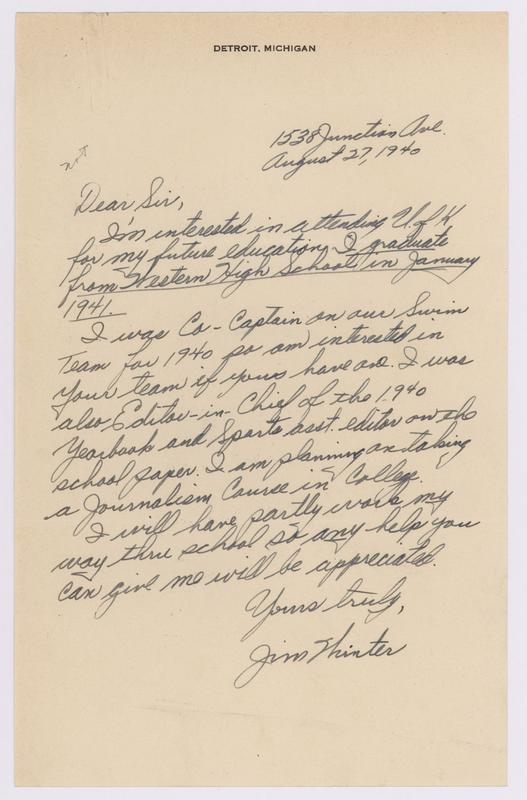 DETROIT, MICHIGAN
1538 Junction Ave.
August 27, 1940
Dear Sir,
I'm interested in attending U. of K
for my future education. I graduate
from Western High School in January
1941.
I was Co-Captain on our Swim
Team for 1940 so am interested in
your team if yours have one. I was
also Editor-in-Chief of the 1940
Yearbook and Sports asst. editor on the
school paper. I am planning on taking
a Journalism Course in College.
I will have partly work my
way thru school so any help you
can give me will be appreciated.
Yours truly,
Jim